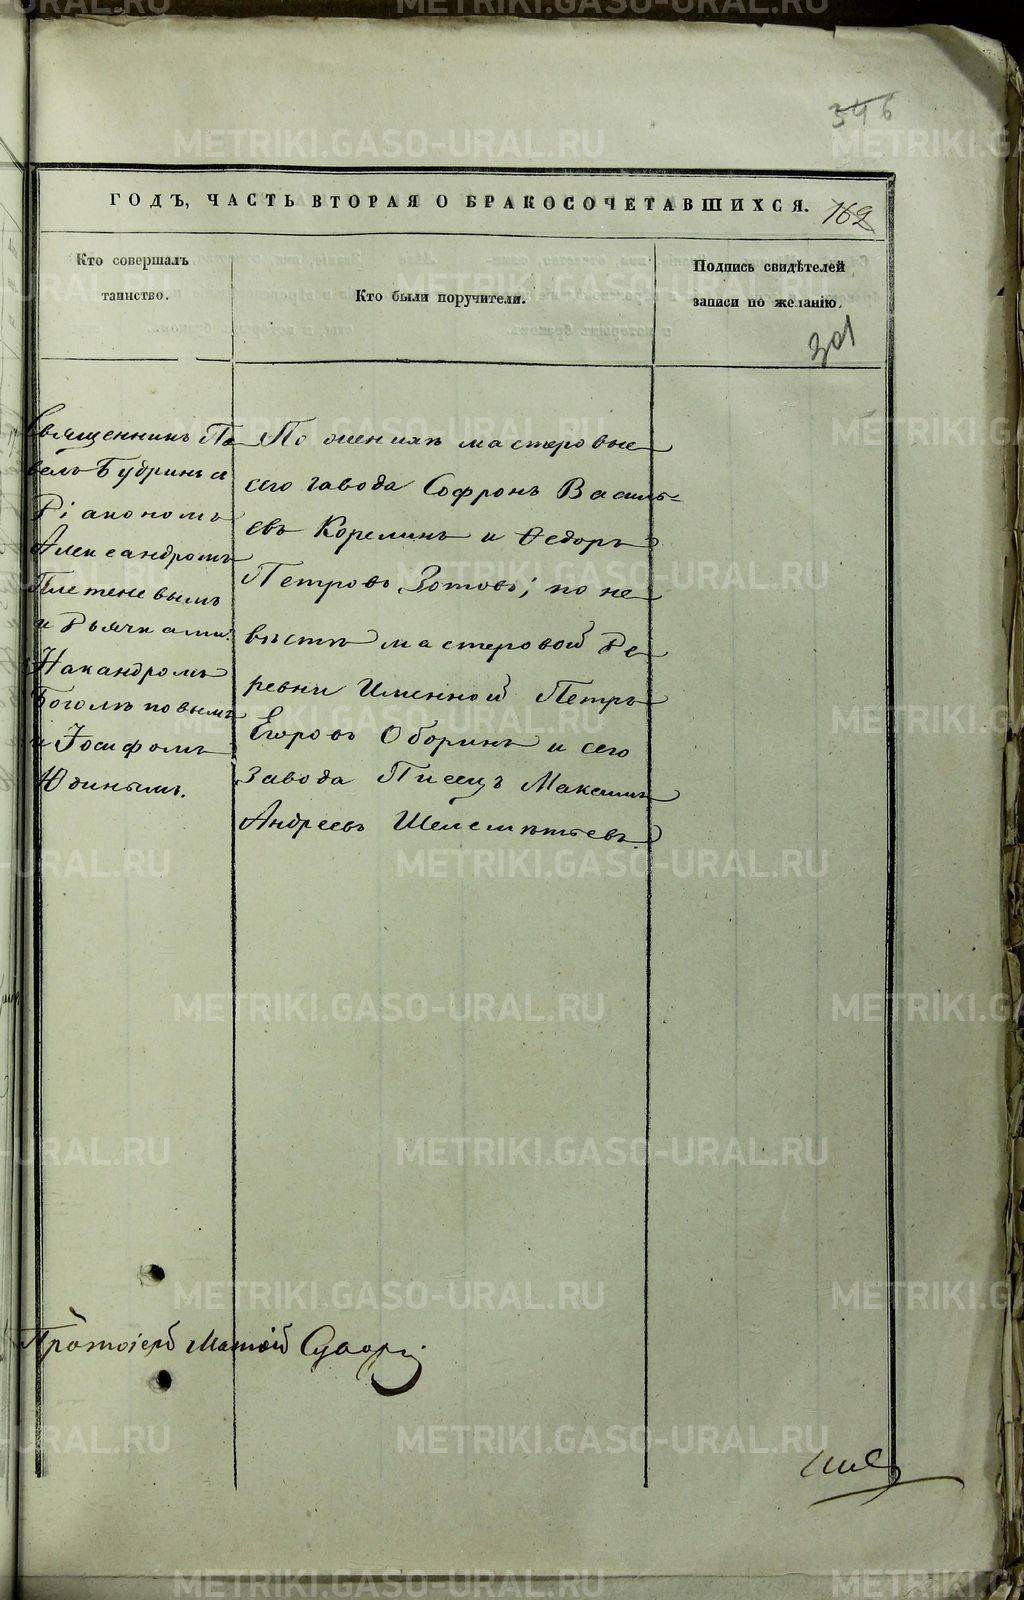 346
ГОДЪ, ЧАСТЬ ВТОРАЯ О БРАКОСОЧЕТАВШИХСЯ. 162
Кто совершалъ
таинство.
Кто были поручители.
Подпись свидѣтелей
записи по желанію.
301
Священникъ Па
велъ Будринъ съ
Діакономъ
Александромъ
Плетеневымъ
и Дьячками:
Никандромъ
Боголѣповымъ
и Іосифомъ
Юдинымъ.
По женихѣ мастеровые
сего завода Софронъ Василь-
евъ Корелинъ и Ѳедоръ
Петровъ Зотовъ; по не
вѣстѣ мастеровой де
ревни Именной Петръ
Егоровъ Оборинъ и сего
завода Писецъ Максимъ
Андреевъ Шелементьевъ.
Протоіерей
METRIKI.GASO-URAL.RU